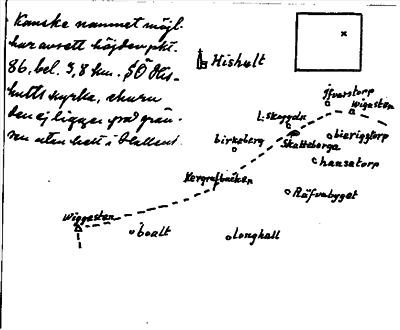 Kanske nammet möjl.
har avsett höjden pkt.
86, bel. 3,8 km. SÖ His-
hults kyrka, churu
den ej ligger på grän-
sen utan helt i Halland.
Hishult
Ifverstorp
Wigasten
L: Skoggaln
bieriggtorp
Skatteberga
birkeberg
hansetorp
Kergrafbacken
Räfnabyget
Wiggesten
boalt
Longhall